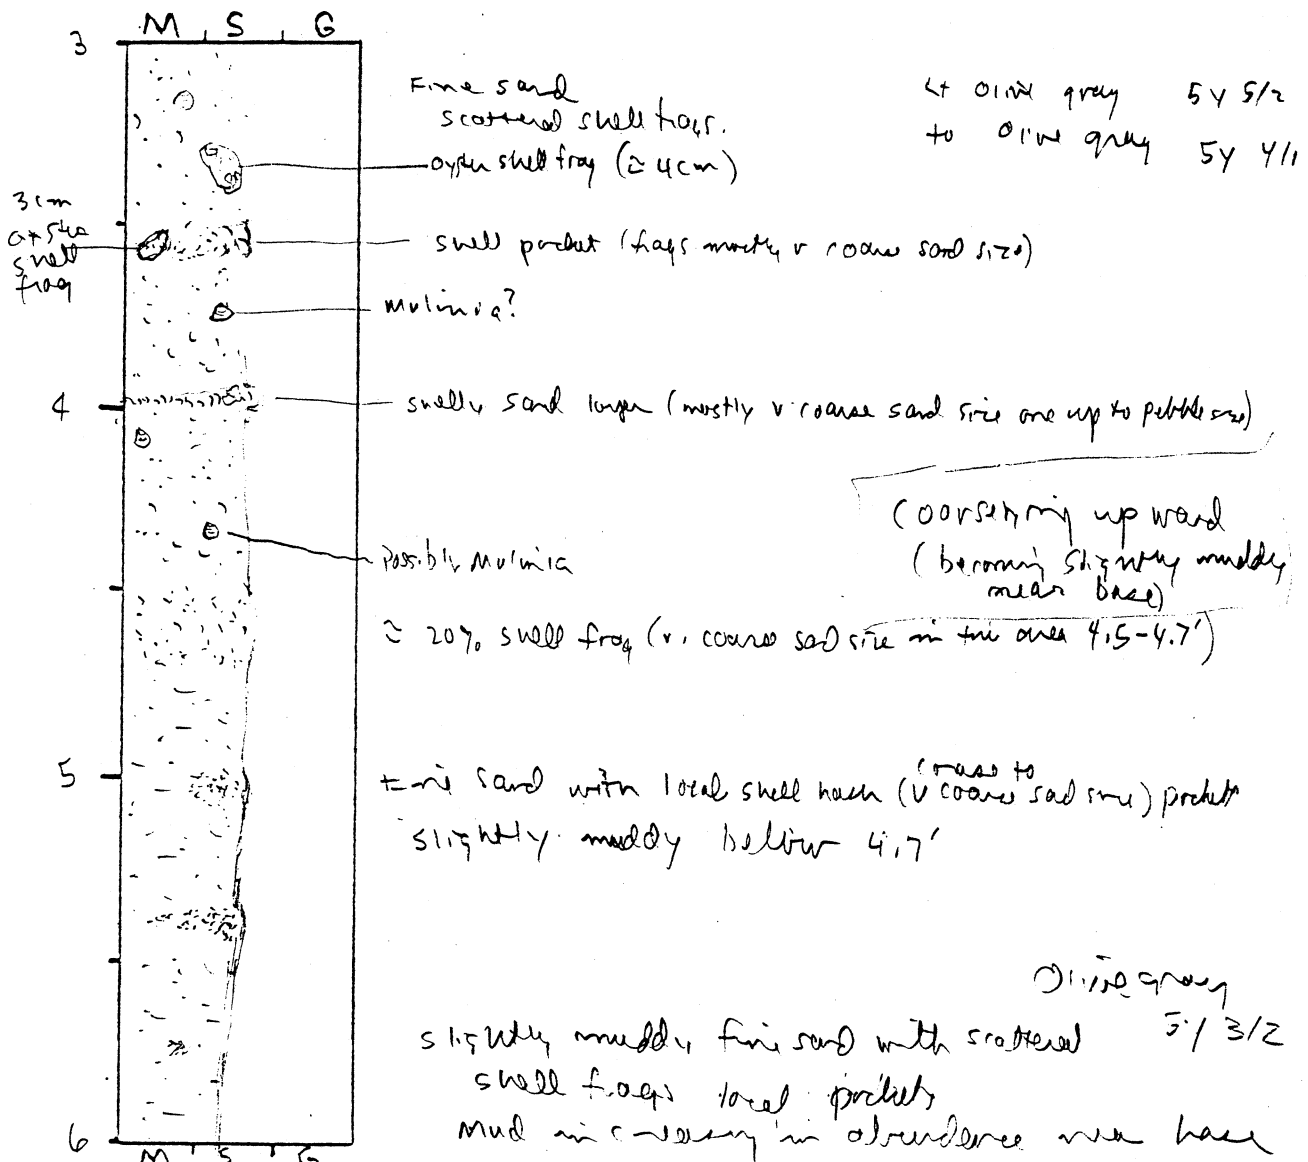 M S G
3
Fine sand
scattered shell frags.
Lt Olive gray 5Y 5/2
to Olive gray 5Y 4/1
oyster shell frag (≈ 4cm)
3cm
oyster
shell
frag
shell pocket (frags mostly v coarse sand size)
Mulinia?
4
shelly sand layer (mostly v coarse sand size one up to pebble size)
Coarsening upward
(becoming slightly muddy
near base)
Possibly Mulinia
≈ 20% shell frag (v. coarse sad size in the area 4.5-4.7')
5
Fine sand with local shell hash (coarse to v coarse sad size) pockets
slightly muddy below 4.7'
Olive gray
5Y 3/2
slightly muddy fine sand with scattered
shell frags local pockets
Mud increasing in abundence near base
6
M S G